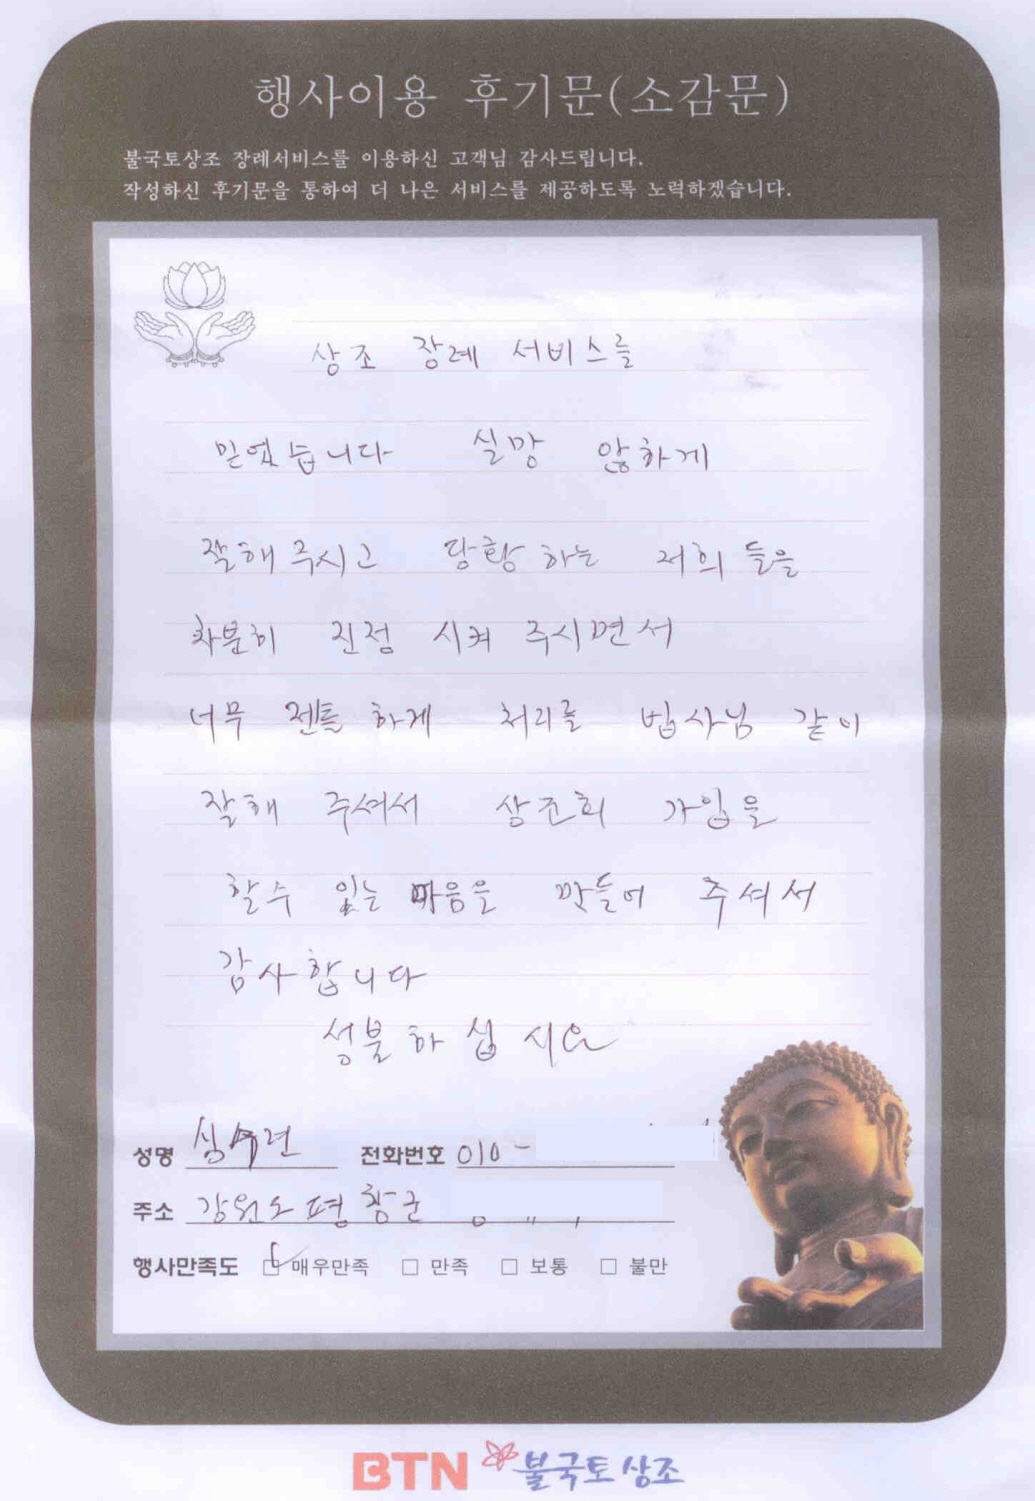 행사이용 후기문(소감문)
불국토상조 장례서비스를 이용하신 고객님 감사드립니다.
작성하신 후기문을 통하여 더 나은 서비스를 제공하도록 노력하겠습니다.
상조 장례 서비스를
믿었습니다 실망 않하게
잘해 주시고 당황 하는 저희 들을
차분히 진정 시켜 주시면서
너무 젠틀 하게 처리를 법사님 같이
잘해 주셔서 상조회 가입을
할수 있는 마음을 만들어 주셔서
감사합니다
성불하 십 시요
성명 심수련 전화번호 010 -
주소 강원도 평창군
행사만족도 매우만족 □ 만족 □ 보통 □ 불만
BTN 불국토상조